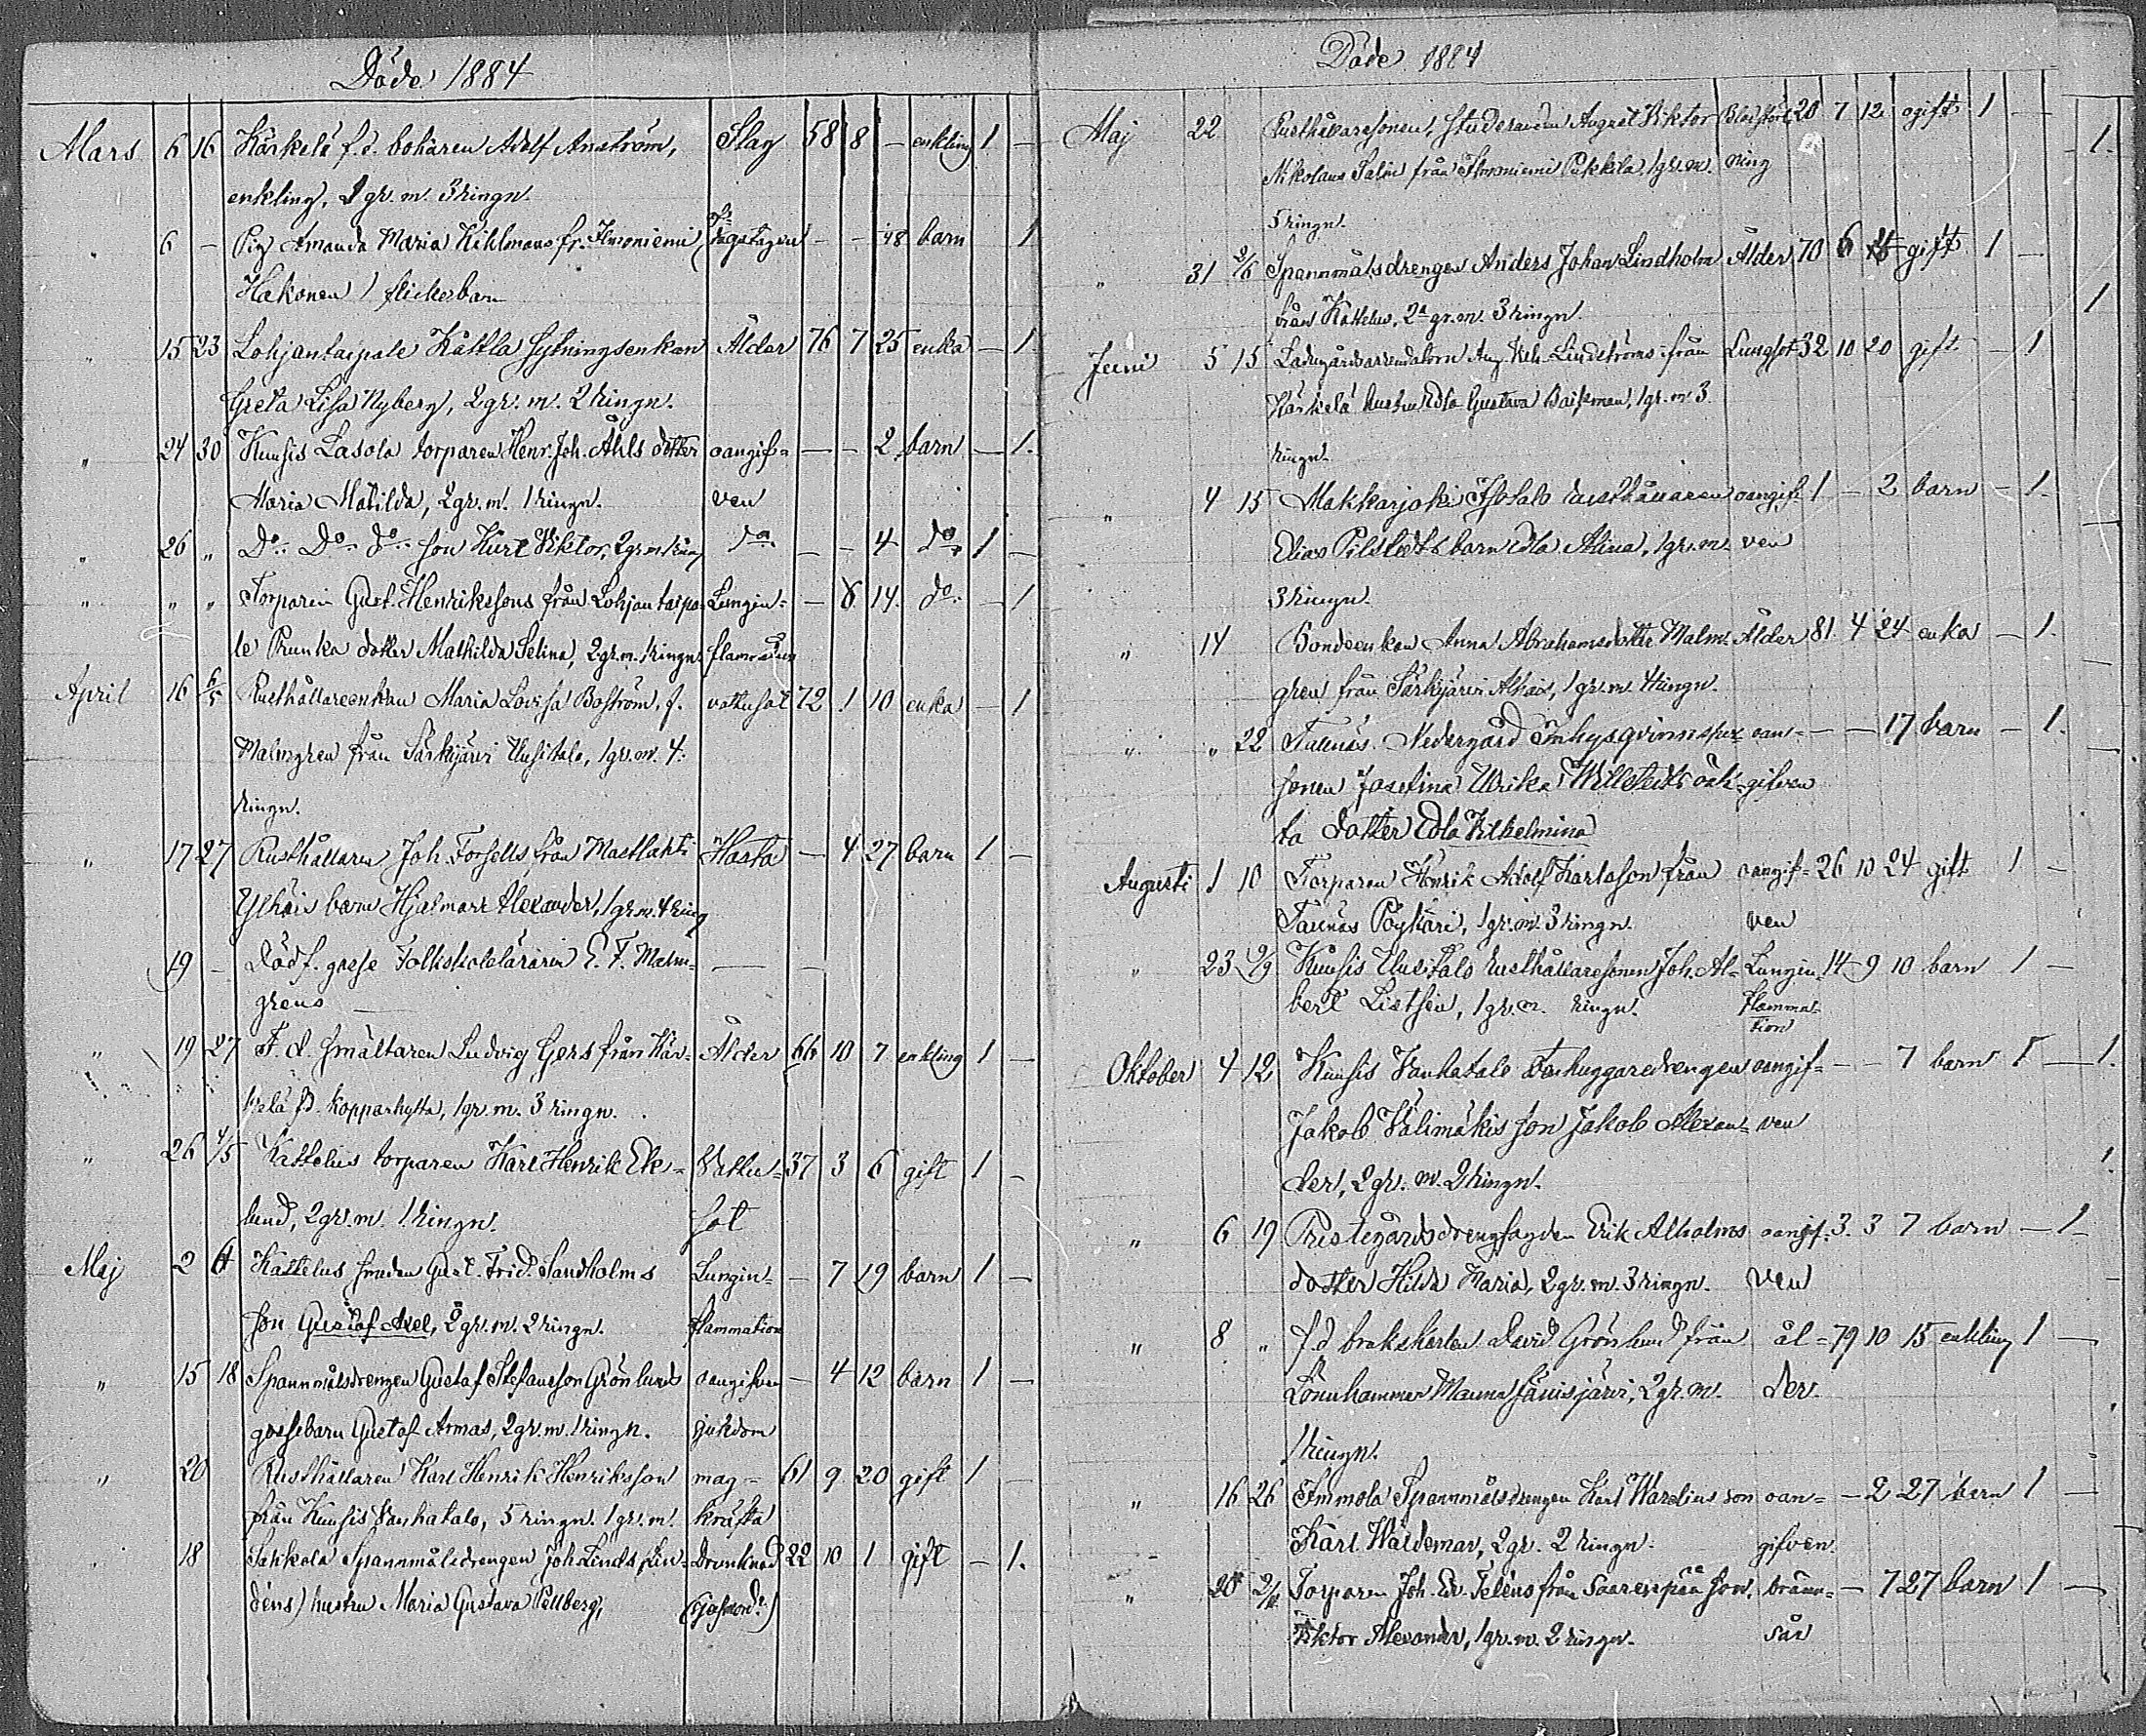 Döde 1884
Mars 6 16 Kärkelä f.d. bokaren Adolf Anström, Slag 58 8 — enkling 1 —
enkling, 2 gr. m. 3 ringn.
" 6 — Pig Amanda Maria Kihlmans fr. Immoniemi — — 48 barn 1
Hakonen) flickebarn
" 15 23 Lohjantaipale Kåstla sytningsenkan Ålder 76 7 25 enka — 1
Greta Lisa Nyberg, 2 gr. m. 2 ringn.
" 24 30 Kuusis Lasola torparen Henr. Joh. Åhls dotter oangif= — — 2 barn — 1.
Maria Matilda, 2 gr. m. 1 ringn. ven
" 26 " Do. Do. do. son Kurt Viktor, 2 gr. m. 1 ring do. — — 4 do. 1 —
" " " Torparen Gust. Henrikssons från Lohjantaipa- Lungin= — 8 14 do. — 1
le Prunka dotter Mathilda Selina, 2 gr. m. 1 ringn. flammation
April 16 6/5 Rusthållareenkan Maria Lovisa Boström, f. vattusot 72 1 10 enka — 1
Malmgren från Särkijärvi Uusitalo, 1 gr. m. 4
ringn.
" 17 27 Rusthållaren Joh. Forsells från Mastlahti Hosta — 4 27 barn 1 —
Ylhäis barn Hjalmar Alexander, 1 gr. m. 4 ring
19 — Dödf. gosse Folkskoleläraren E. F. Malm= — —
grens —
" 19 27 F. d. smältaren Ludvig Gers från Kär= Ålder 66 10 7 enkling 1 —
kelä fd. kopparhytta, 1 gr. m. 3 ringn.
" 26 4/5 Kattelus torparen Karl Henrik Ek= Vattu= 37 3 6 gift 1 —
lund, 2 gr. m. 1 ringn. sot
Maj 2 4 Kattelus smeden Gust. Frid. Sandholms Lungin= — 7 19 barn 1 —
son Gustaf Axel, 2 gr. m. 2 ringn. flammation
" 15 18 Spannmålsdrengen Gustaf Stefansson Grönlunds oangifven — 4 12 barn 1 —
gossebarn Gustaf Armas, 2 gr. m. 1 ringn. sjukdom
" 20 Rusthållaren Karl Henrik Henriksson mag= 61 9 20 gift 1 —
från Kuusis Vanhatalo, 5 ringn. 1 gr. m. kräfta
" 18 Saikola Spannmålsdrengen Joh. Linds (Lin- drunknad 22 10 1 gift — 1.
déns) hustru Maria Gustava Pellberg,
Döde 1884
Maj 22 Rusthållaresonen, studeranden August Viktor Blodstört= 20 7 12 ogift 1 —
Nikolaus Salin från Immoniemi Pukkila, 1 gr. m. ning 1.
5 ringn.
" 31 2/6 Spannmålsdrengen Anders Johan Lindholm Ålder 70 6 gift 1 —
från Kattelus, 2a gr. m. 3 ringn. 1
Juni 5 15 Ladugårdsarrendatorn Aug. Vilh. Lindströms från Lungsot 32 10 20 gift — 1
Kärkelä hustru Edla Gustava Baikman, 1 gr. m. 3
ringn.
" 4 15 Makkarjoki Isotalo rusthållaren oangif= 1 — 2 barn — 1.
Elias Pilstedts barn Edla Alina, 1 gr. m. ven
3 ringn.
" 14 Bondeenkan Anna Abrahamsdotter Malm- Ålder 81 4 24 enka — 1.
gren från Särkijärvi Alhais, 1 gr. m. 4 ringn.
" " 22 Tallnäs Nedergård Inhysqvinnsper= oan= — — 17 barn — 1.
sonen Josefina Ulrika Willstedts oäk= gifven
ta dotter Edla Vilhelmina
Augusti 1 10 Torparen Henrik Adolf Karlsson från oangif= 26 10 24 gift 1 —
Saunäs Pöykäri, 1 gr. m. 3 ringn. ven
" 23 Kuusis Uusitalo rusthållaresonen Joh. Al= Lungin= 14 9 10 barn 1 —
bert Listhén, 1 gr. m. ringn. flamma=
tion
Oktober 4 12 Kuusis Vanhatalo stenhuggaredrengen oangif= — — 7 barn 1 — 1.
Jakob Välimäkis son Jakob Alexan= ven
der, 2 gr. m. 2 ringn. 1.
" 6 19 Prestegårdsdrengs Erik Alholms oangif= 3 3 7 barn — 1
dotter Hilda Maria, 2 gr. m. 3 ringn. ven
" 8 " f.d brukskarlen David Grönlund från ål= 79 10 15 enkling 1 —
Lönnhammar Maunu Jänisjärvi, 2 gr. m. der
1 ringn.
" 16 26 Immola Spannmålsdrengen Karl Wardius son oan= — 2 27 barn 1 —
Karl Waldemar, 2 gr. 2 ringn. gifven
" 28 2/11 Torparen Joh. Ed. Feléns från Saarenpää son bränn= — 7 27 barn 1 —
Viktor Alexander, 1 gr. m. 2 ringn. sår